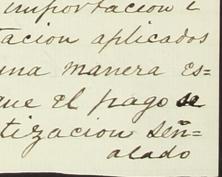 importacion i
tacion aplicados
una manera es=
que el pago se
tizacion señ=
alado